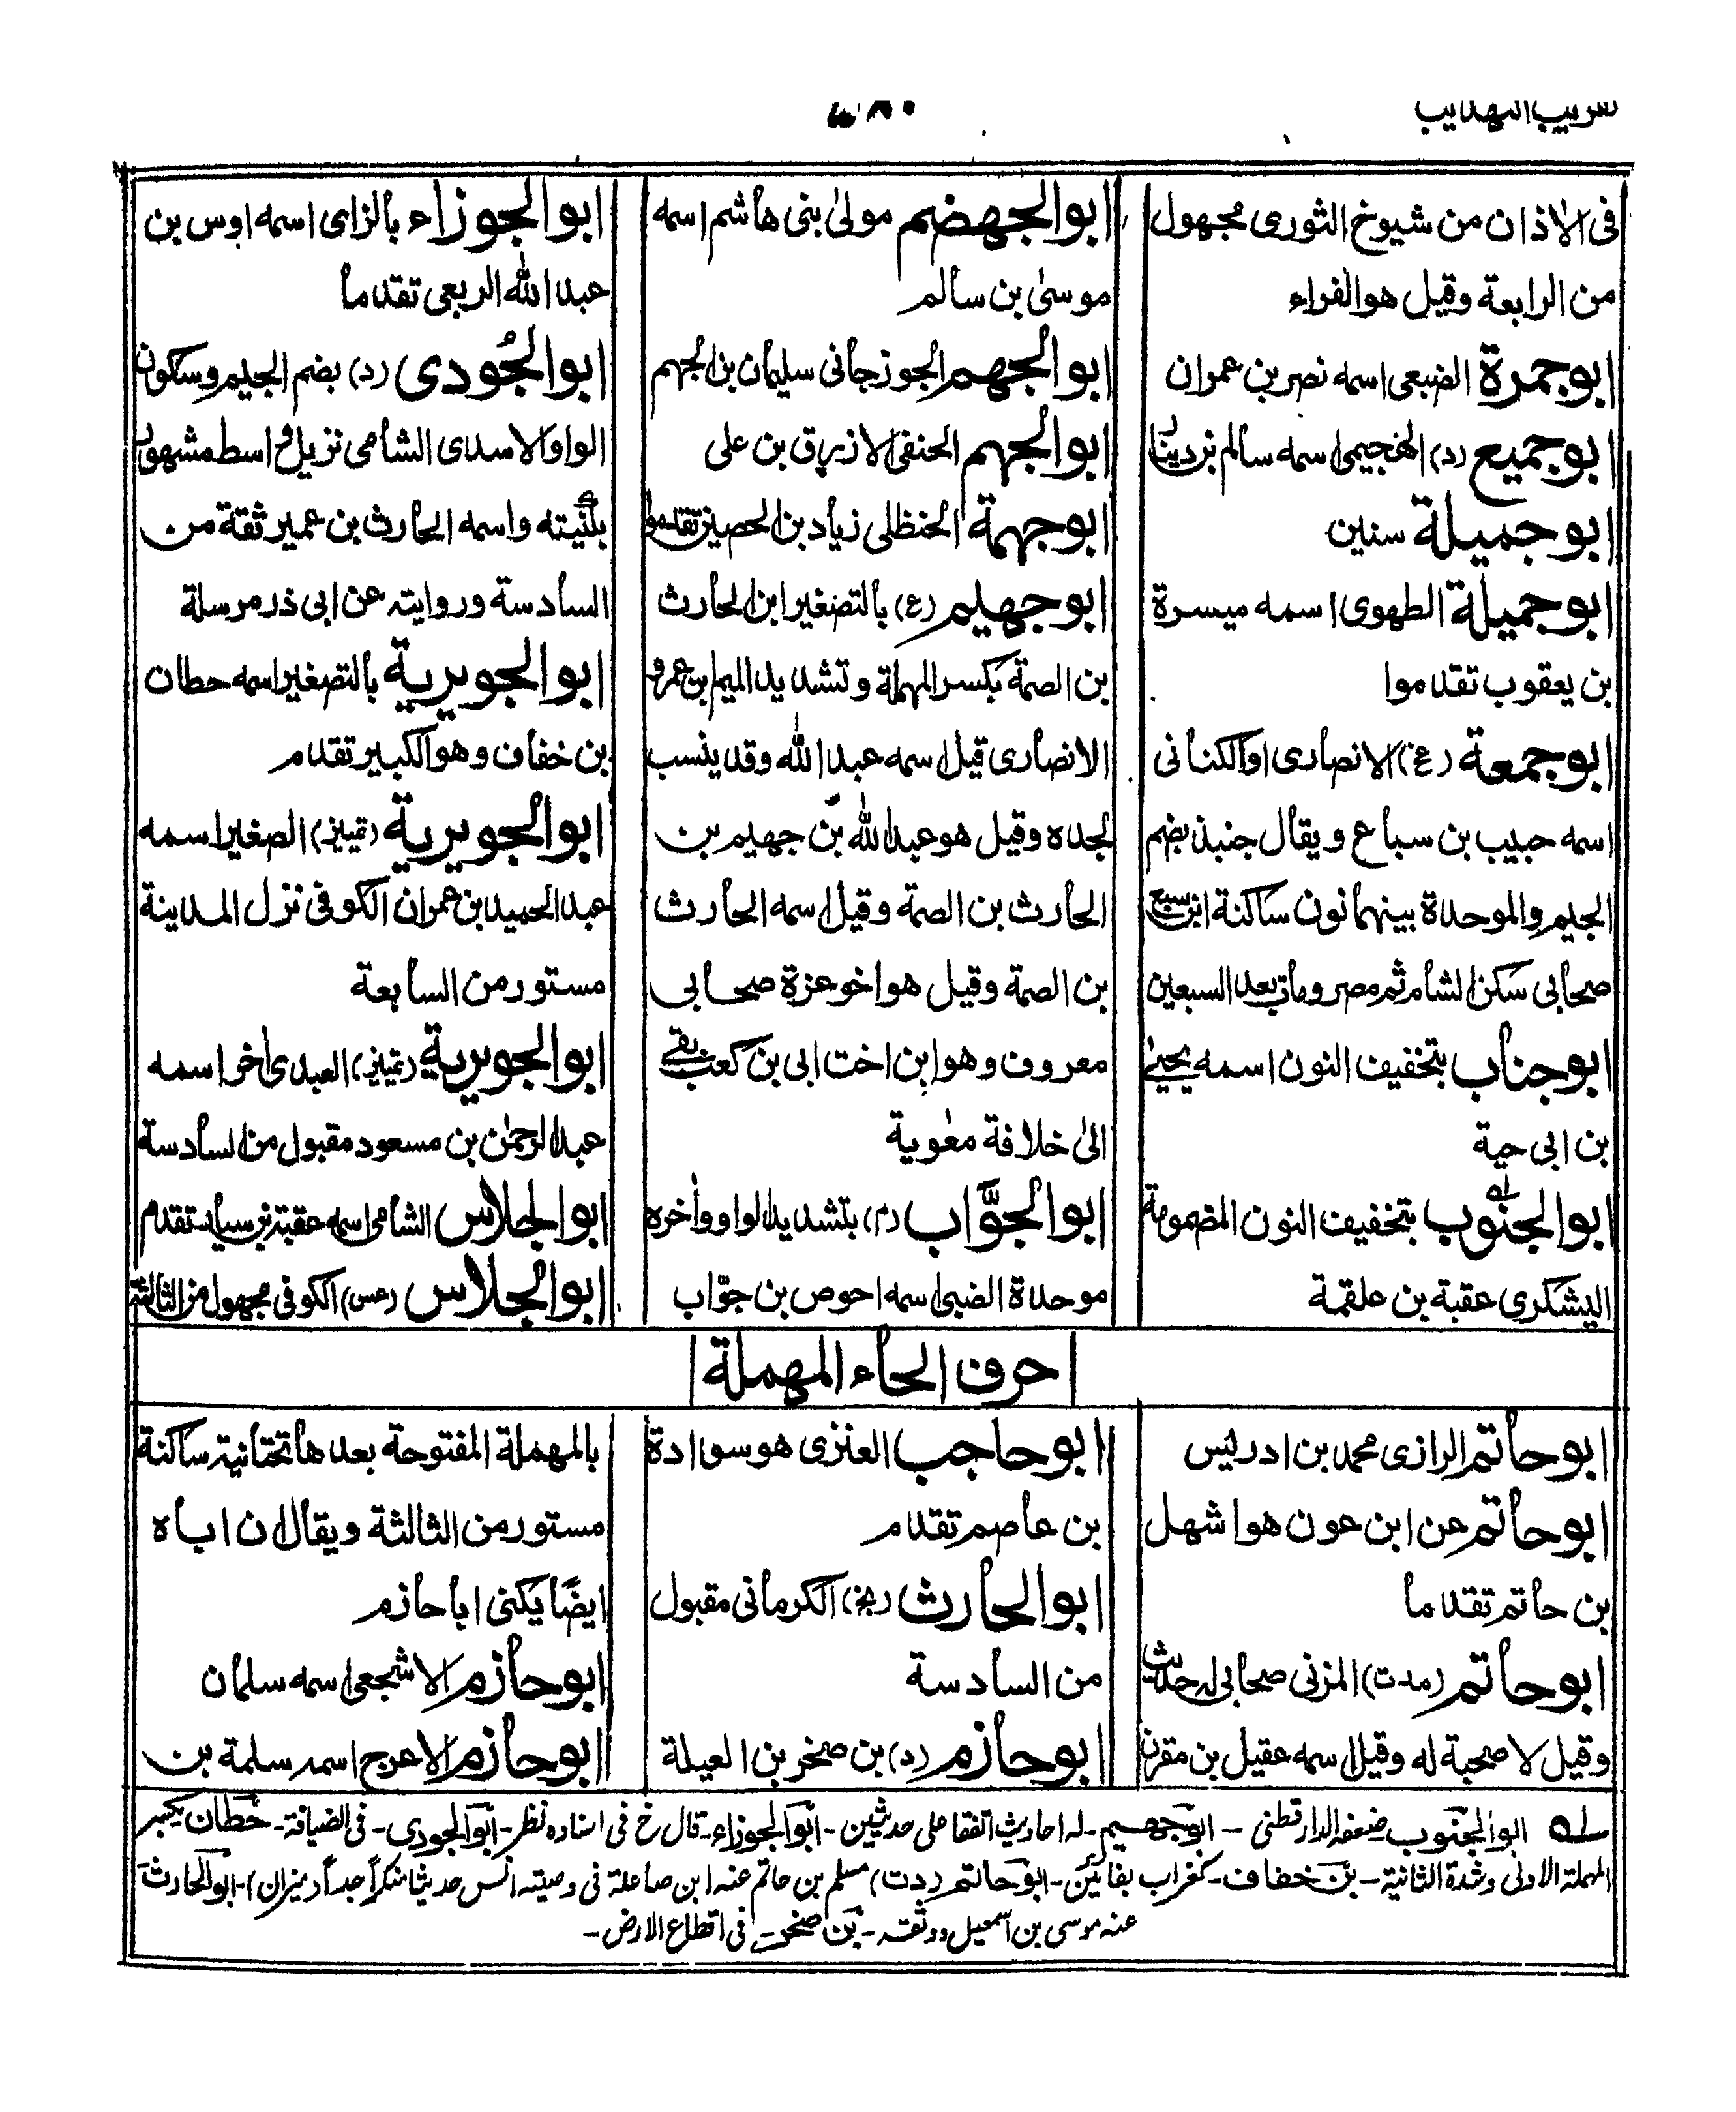 تقريب التهذيب
في الاذان من شيوخ الثوري مجهول
من الرابعة وقيل هو الفراء
ابو جمرة الضبعي اسمه نصر بن عمران
ابو جميع (د) الهجيمي اسمه سالم بن دينار
ابو جميلة سنين
ابو جميلة الطهوي اسمه ميسرة
بن يعقوب تقدموا
ابو جمعة (عخ) الانصاري او الكناني
اسمه حبيب بن سباع ويقال جنبذ بضم
الجيم والموحدة بينهما نون ساكنة ابن سبع
صحابي سكن الشام ثم مصر ومات بعد السبعين
ابو جناب بتخفيف النون اسمه يحيى
بن ابي حية
ابو الجنوب بتخفيف النون المضمومة
اليشكري عقبة بن علقمة
ابو الجهضم مولى بني هاشم اسمه
موسى بن سالم
ابو الجهم الجوزجاني سليمان بن الجهم
ابو الجهم الحنفي الازرق بن علي
ابو جهمة الحنظلي زياد بن الحصين تقدموا
ابو جهيم (ع) بالتصغير ابن الحارث
بن الصمة بكسر المهملة وتشديد الميم ابن عمرو
الانصاري قيل اسمه عبد الله وقد ينسب
لجده وقيل هو عبد الله بن جهيم بن
الحارث بن الصمة وقيل اسمه الحارث
بن الصمة وقيل هو اخو عزة صحابي
معروف وهو ابن اخت ابي بن كعب بقي
الى خلافة معوية
ابو الجوّاب (م) بتشديد الواو وأخره
موحدة الضبي اسمه احوص بن جوّاب
ابو الجوزاء بالزاي اسمه اوس بن
عبد الله الربعي تقدما
ابو الجُودي (د) بضم الجيم وسكون
الواو الاسدي الشامي نزيل واسط مشهور
بكنيته واسمه الحارث بن عمير ثقة من
السادسة وروايته عن ابي ذر مرسلة
ابو الجويرية بالتصغير اسمه حطان
بن خفاف وهو الكبير تقدم
ابو الجويرية (تمييز) الصغير اسمه
عبد الحميد بن عمران الكوفي نزل المدينة
مستور من السابعة
ابو الجويرية (تمييز) العبدي أخر اسمه
عبد الرحمٰن بن مسعود مقبول من السادسة
ابو الجلاس الشامي اسمه عقبة بن سيار تقدم
ابو الجلاس (عس) الكوفي مجهول من الثالثة
حرف الحاء المهملة
ابو حاتم الرازي محمد بن ادريس
ابو حاتم عن ابن عون هو اشهل
بن حاتم تقدما
ابو حاتم (مدت) المزني صحابي له حديث
وقيل لا صحبة له وقيل اسمه عقيل بن مقرن
ابو حاجب العنزي هو سوادة
بن عاصم تقدم
ابو الحارث (بخ) الكرماني مقبول
من السادسة
ابو حازم (د) بن صخر بن العيلة
بالمهملة المفتوحة بعدها تحتانية ساكنة
مستور من الثالثة ويقال ان اباه
ايضًا يكنى ابا حازم
ابو حازم الاشجعي اسمه سلمان
ابو حازم الاعرج اسمه سلمة بن
له ابو الجنوب ضعفه الدارقطني - ابو جهيم - له احاديث اتفقا على حديثين - ابو الجوزاء - قال خ في اسناده نظر - ابو الجودي - في الضيافة - حطان بكسر
المهملة الاولى وشدة الثانية - بن خفاف - كغراب بفائين - ابو حاتم (دت) مسلم بن حاتم عنه ابن صاعد له في وصيته انس حديثا منكراً جداً (ميزان) - ابو الحارث
عنه موسى بن اسمعيل ووثقه - بن صخر - في اقطاع الارض -